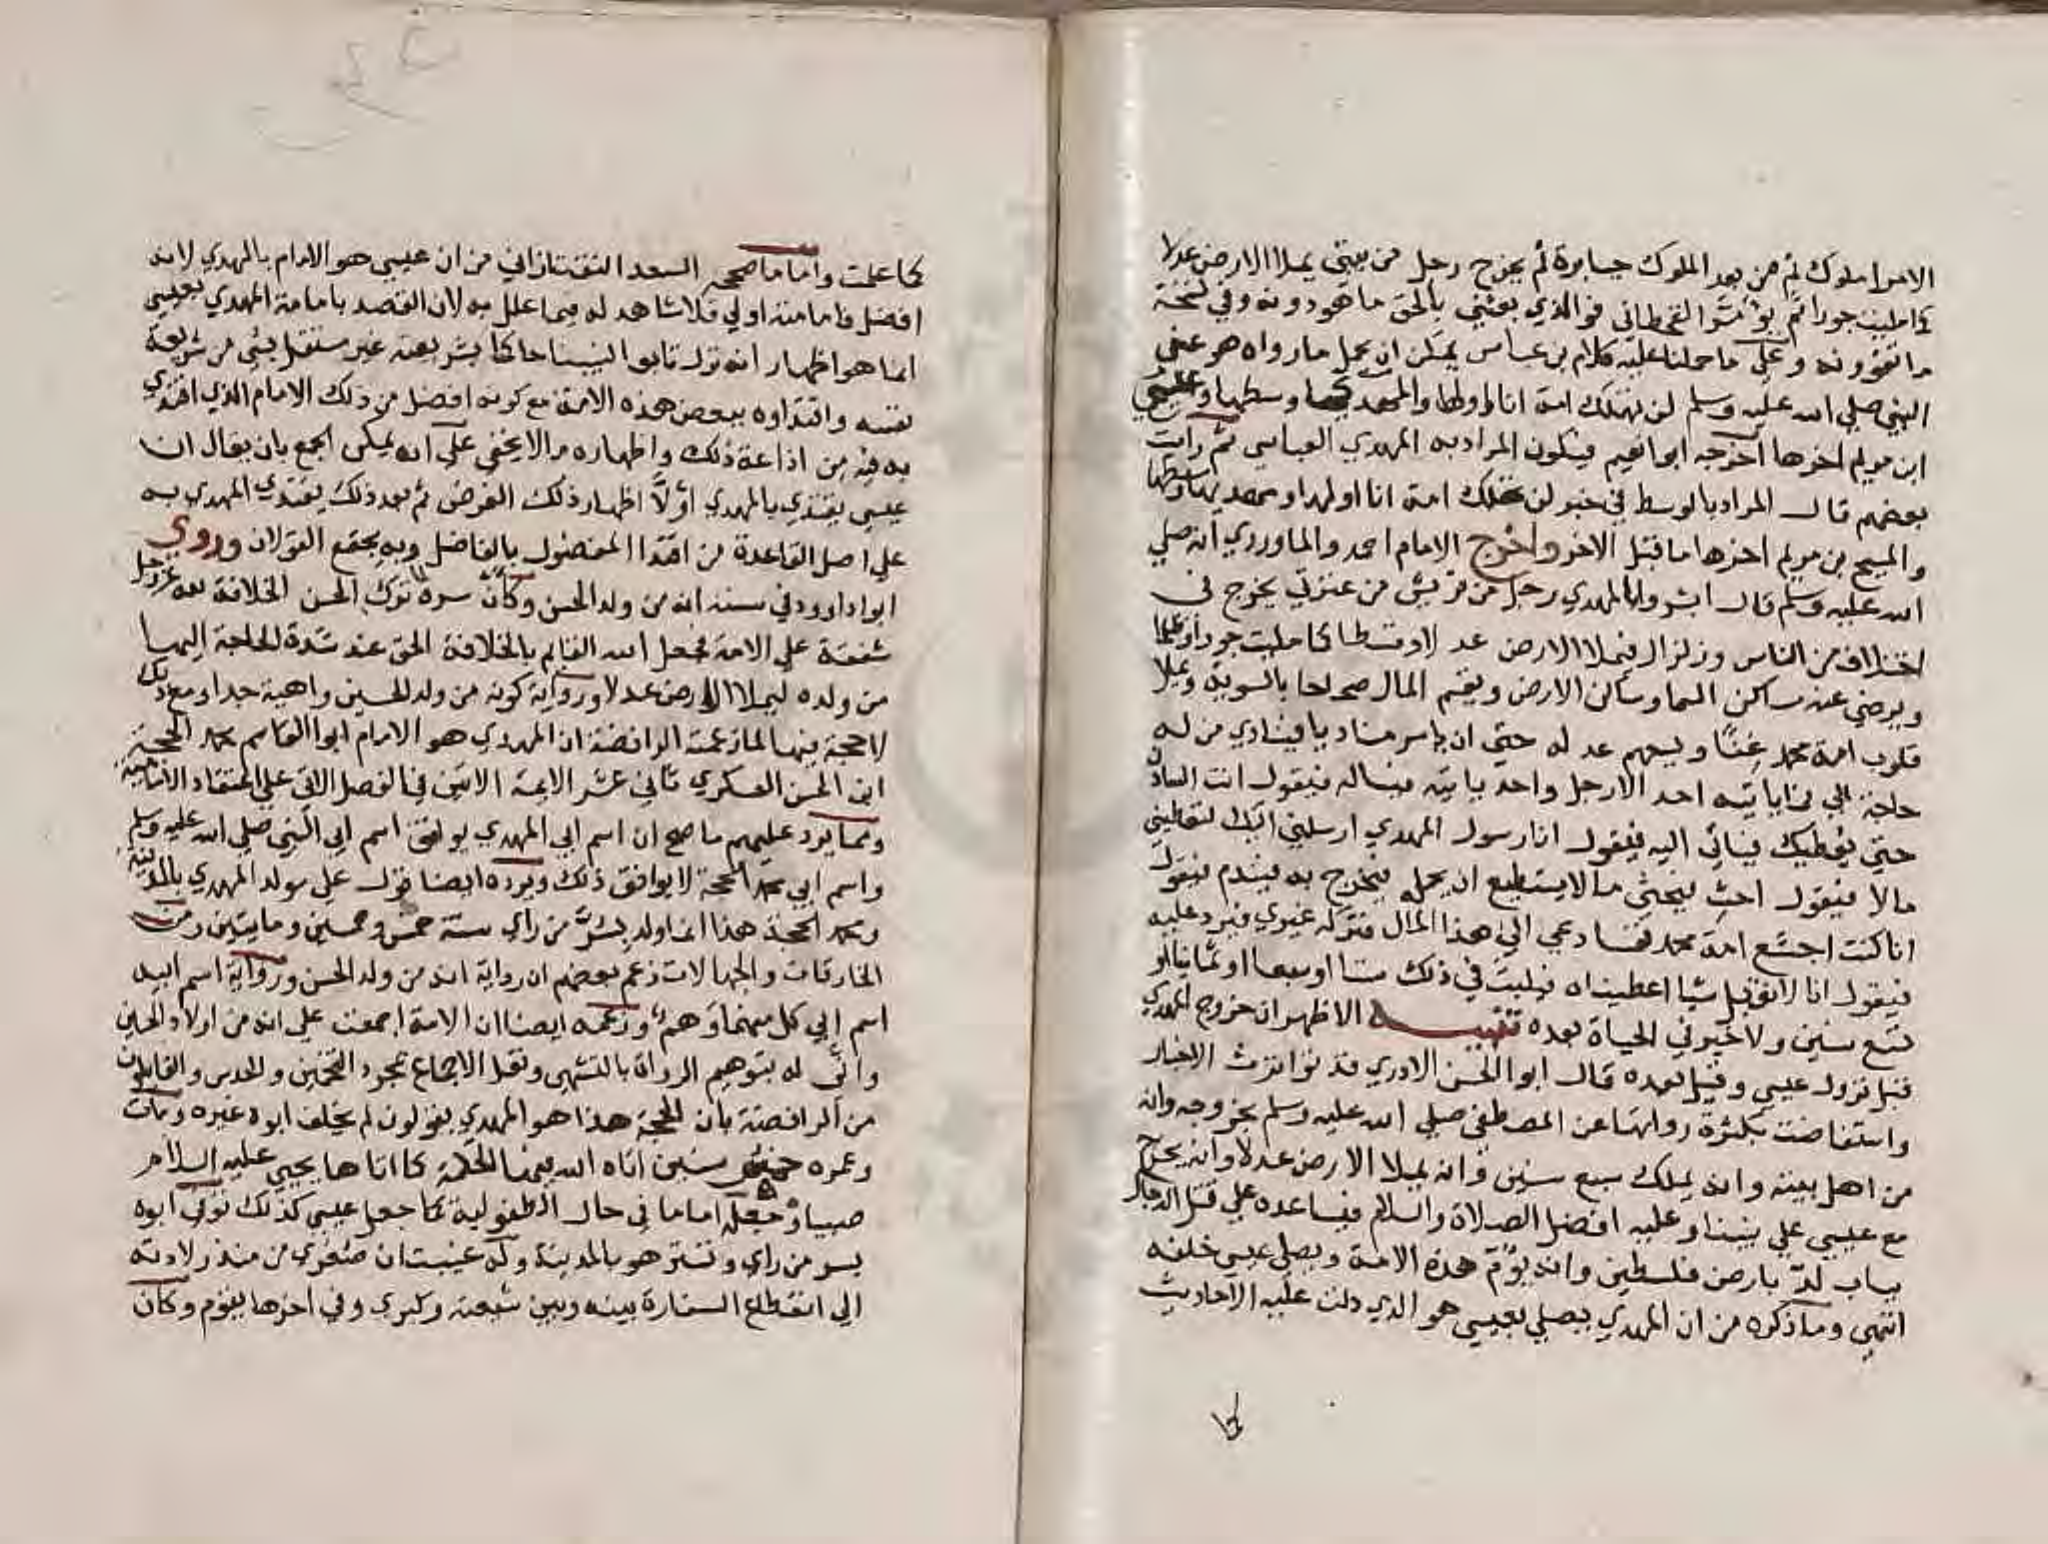 الامرا ملوك ثم من بعد الملوك جبابرة ثم يخرج رجل من بيتي يملا الارض عدلا
كما مليت جورا ثم يؤمّر القحطاني فو الذي بعثني بالحق ما هو دونه وفي نسخة
ما تقوونه وعلى ما حملنا عليه كلام بن عباس يمكن ان يحمل ما رواه هو عن
النبي صلي الله عليه وسلم لن تهلك امة انا اولها والمهدي وسطها وعيسي
ابن مريم اخرها اخرجه ابو نعيم فيكون المراد به المهدي العباسي ثم رايت
بعضهم قال المراد بالوسط في خبر لن تهلك امة انا اولها ومهديها وسطها
والمسيح بن مريم اخرها ما قبل الاخر واخرج الامام احمد والماوردي انه صلي
الله عليه وسلم قال ابشروا بالمهدي رجل من قريش من عترتي يخرج في
اختلاف من الناس وزلزال فيملا الارض عدلا وقسطا كما مليت جورا وظلما
ويرضي عنه ساكن السما وساكن الارض ويقسم المال صحاحا بالسوية ويملا
قلوب امة محمد غنًا ويسعهم عدله حتي ان يامر مناديا فينادي من له
حاجة الي فما ياتيه احد الا رجل واحد ياتيه فيساله فيقول ائت السادن
حتي يعطيك فياتي اليه فيقول انا رسول المهدي ارسلني اليك لتعطيني
مالا فيقول احث فيحثي ما لا يستطيع ان يحمله فيخرج به فيندم فيقول
انا كنت اجشع امة محمد نفسا دعي الي هذا المال فتركه غيري فيرد عليه
فيقول انا لا نقبل شيا اعطيناه فيلبث في ذلك ستا او سبعا او ثمانيا او
تسع سنين ولا خير في الحياة بعده تنبيه الاظهر ان خروج المهدي
قبل نزول عيسي وقيل بعده قال ابو الحسن الادري قد تواترت الاخبار
واستفاضت بكثرة رواتها عن المصطفي صلي الله عليه وسلم بخروجه وانه
من اهل بيته وانه يملك سبع سنين وانه يملا الارض عدلا وانه يخرج
مع عيسي علي نبينا وعليه افضل الصلاة والسلام فيساعده علي قتل الدجال
بباب لدّ بارض فلسطين وانه يؤم هذه الامة ويصلي عيسي خلفه
انتهي وما ذكره من ان المهدي يصلي بعيسي هو الذي دلت عليه الاحاديث
كما
كما علمت واما ما صححه السعد التفتازاني من ان عيسي هو الامام بالمهدي لانه
افضل فامامته اولي فلا شاهد له فيما علل به لان القصد بامامة المهدي بعيسي
انما هو اظهار انه نزل تابعا لنبينا حاكما بشريعته غير مستقل بشي من شريعة
نفسه واقتداوه ببعض هذه الامة مع كونه افضل من ذلك الامام الذي اقتدي
به فيه من اذاعة ذلك واظهاره ما لا يخفي علي انه يمكن الجمع بان يقال ان
عيسي يقتدي بالمهدي اوّلًا اظهار ذلك الغرض ثم بعد ذلك يقتدي المهدي به
علي اصل القاعدة من اقتدا المفضول بالفاضل وبه يجتمع القولان وروي
ابو داوود في سننه انه من ولد الحسن وكأنّ سره ترك الحسن الخلافة لله عزوجل
شفقة علي الامة فجعل الله القايم بالخلافة الحق عند شدة الحاجة اليها
من ولده ليملا الارض عدلا ورواية كونه من ولد الحسين واهية جدا ومع ذلك
لا حجة فيها لما زعمته الرافضة ان المهدي هو الامام ابو القاسم محمد الحجة
ابن الحسن العسكري ثاني عشر الايمة الاتين في الفصل الاتي علي اعتقاد الامامية
ومما يرد عليهم ما صح ان اسم ابي المهدي يوافق اسم ابي النبي صلي الله عليه وسلم
واسم ابي محمد الحجة لا يوافق ذلك ويرده ايضا قول علي مولد المهدي بالمدينة
ومحمد الحجة هذا انما ولد بسُرّ من راي سنة خمس وخمسين ومايتين ومن
الخارقات والجهالات زعم بعضهم ان رواية انه من ولد الحسن ورواية اسم ابيه
اسم ابي كل منهما وهم وزعمه ايضا ان الامة اجمعت علي انه من اولاد الحسين
وانّي له بتوهيم الرواة بالتشهي ونقل الاجماع بمجرد التخمين والحدس والقايلون
من الرافضة بان الحجة هذا هو المهدي يقولون لم يخلف ابوه غيره ومات
وعمره خمس سنين اتاه الله فيها الحكمة كما اتاها يحيي عليه السلام
صبيا وجعله اماما في حال الطفولية كما جعل عيسي كذلك توفي ابوه
بسر من راي وتستر هو بالمدينة وله غيبتان صغري من منذ ولادته
الي انقطاع السفارة بينه وبين شيعته وكبري وفي اخرها يقوم وكان